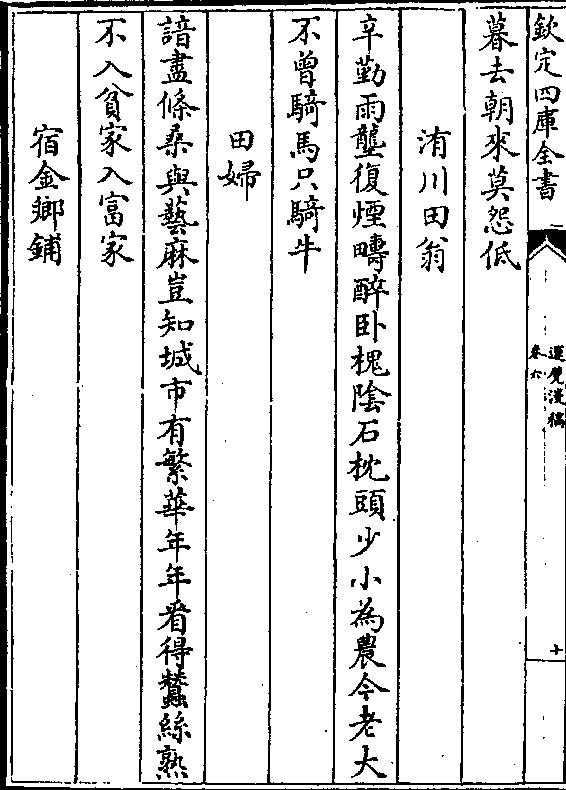 欽定四庫全書
運甓漫稿
卷六
十
暮去朝來莫怨低
洧川田翁
辛勤雨壟復煙疇醉卧槐陰石枕頭少小為農今老大
不曾騎馬只騎牛
田婦
諳盡條桑與藝麻豈知城市有繁華年年看得蠶絲熟
不入貧家入富家
宿金鄉鋪